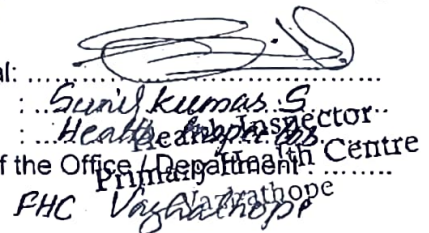 al: ........................
: Sunil kumar S
: Health Inspector
Health Inspector
of the Office / Department
Primary Health Centre
FHC Vazhathope
Vazhathope